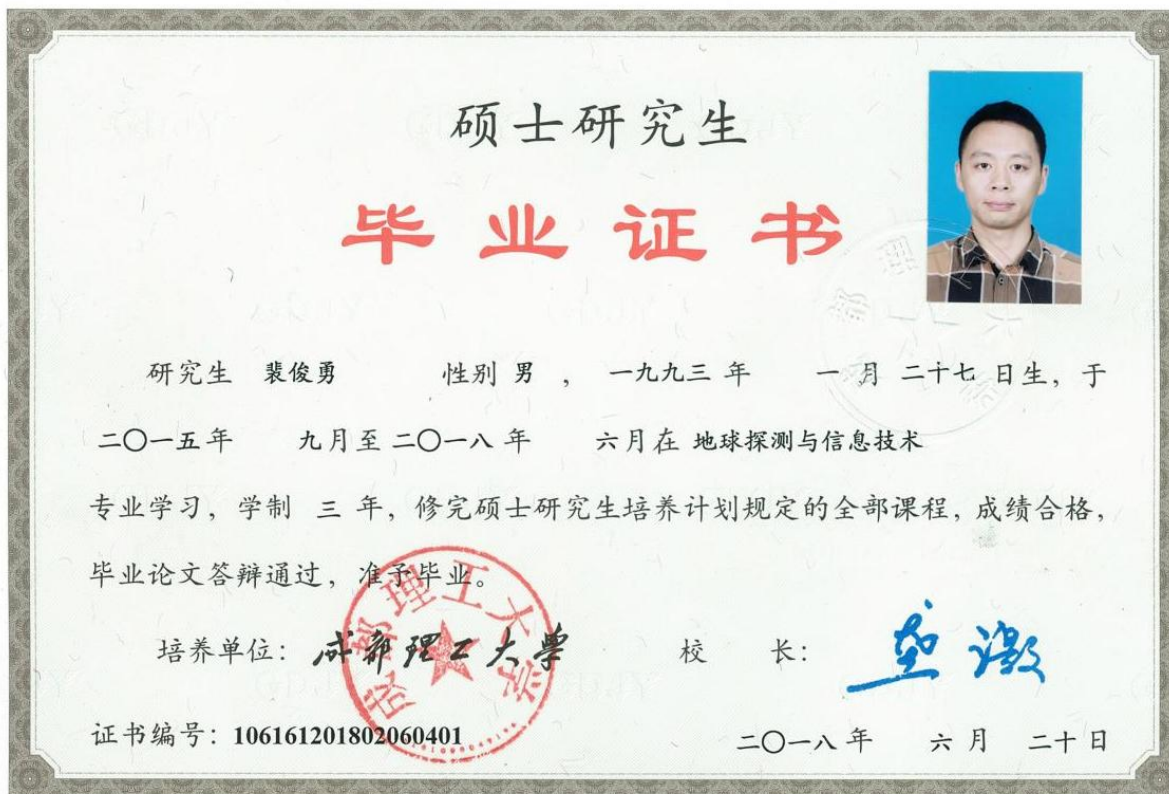 硕士研究生
毕业证书
研究生 裴俊勇 性别 男 ， 一九九三 年 一 月 二十七 日生，于
二〇一五年 九月至 二〇一八 年 六月在 地球探测与信息技术
专业学习，学制 三 年，修完硕士研究生培养计划规定的全部课程，成绩合格，
毕业论文答辩通过，准予毕业。
成都理工大学
培养单位：成都理工大學 校 长：
证书编号：106161201802060401 二〇一八 年 六 月 二十日